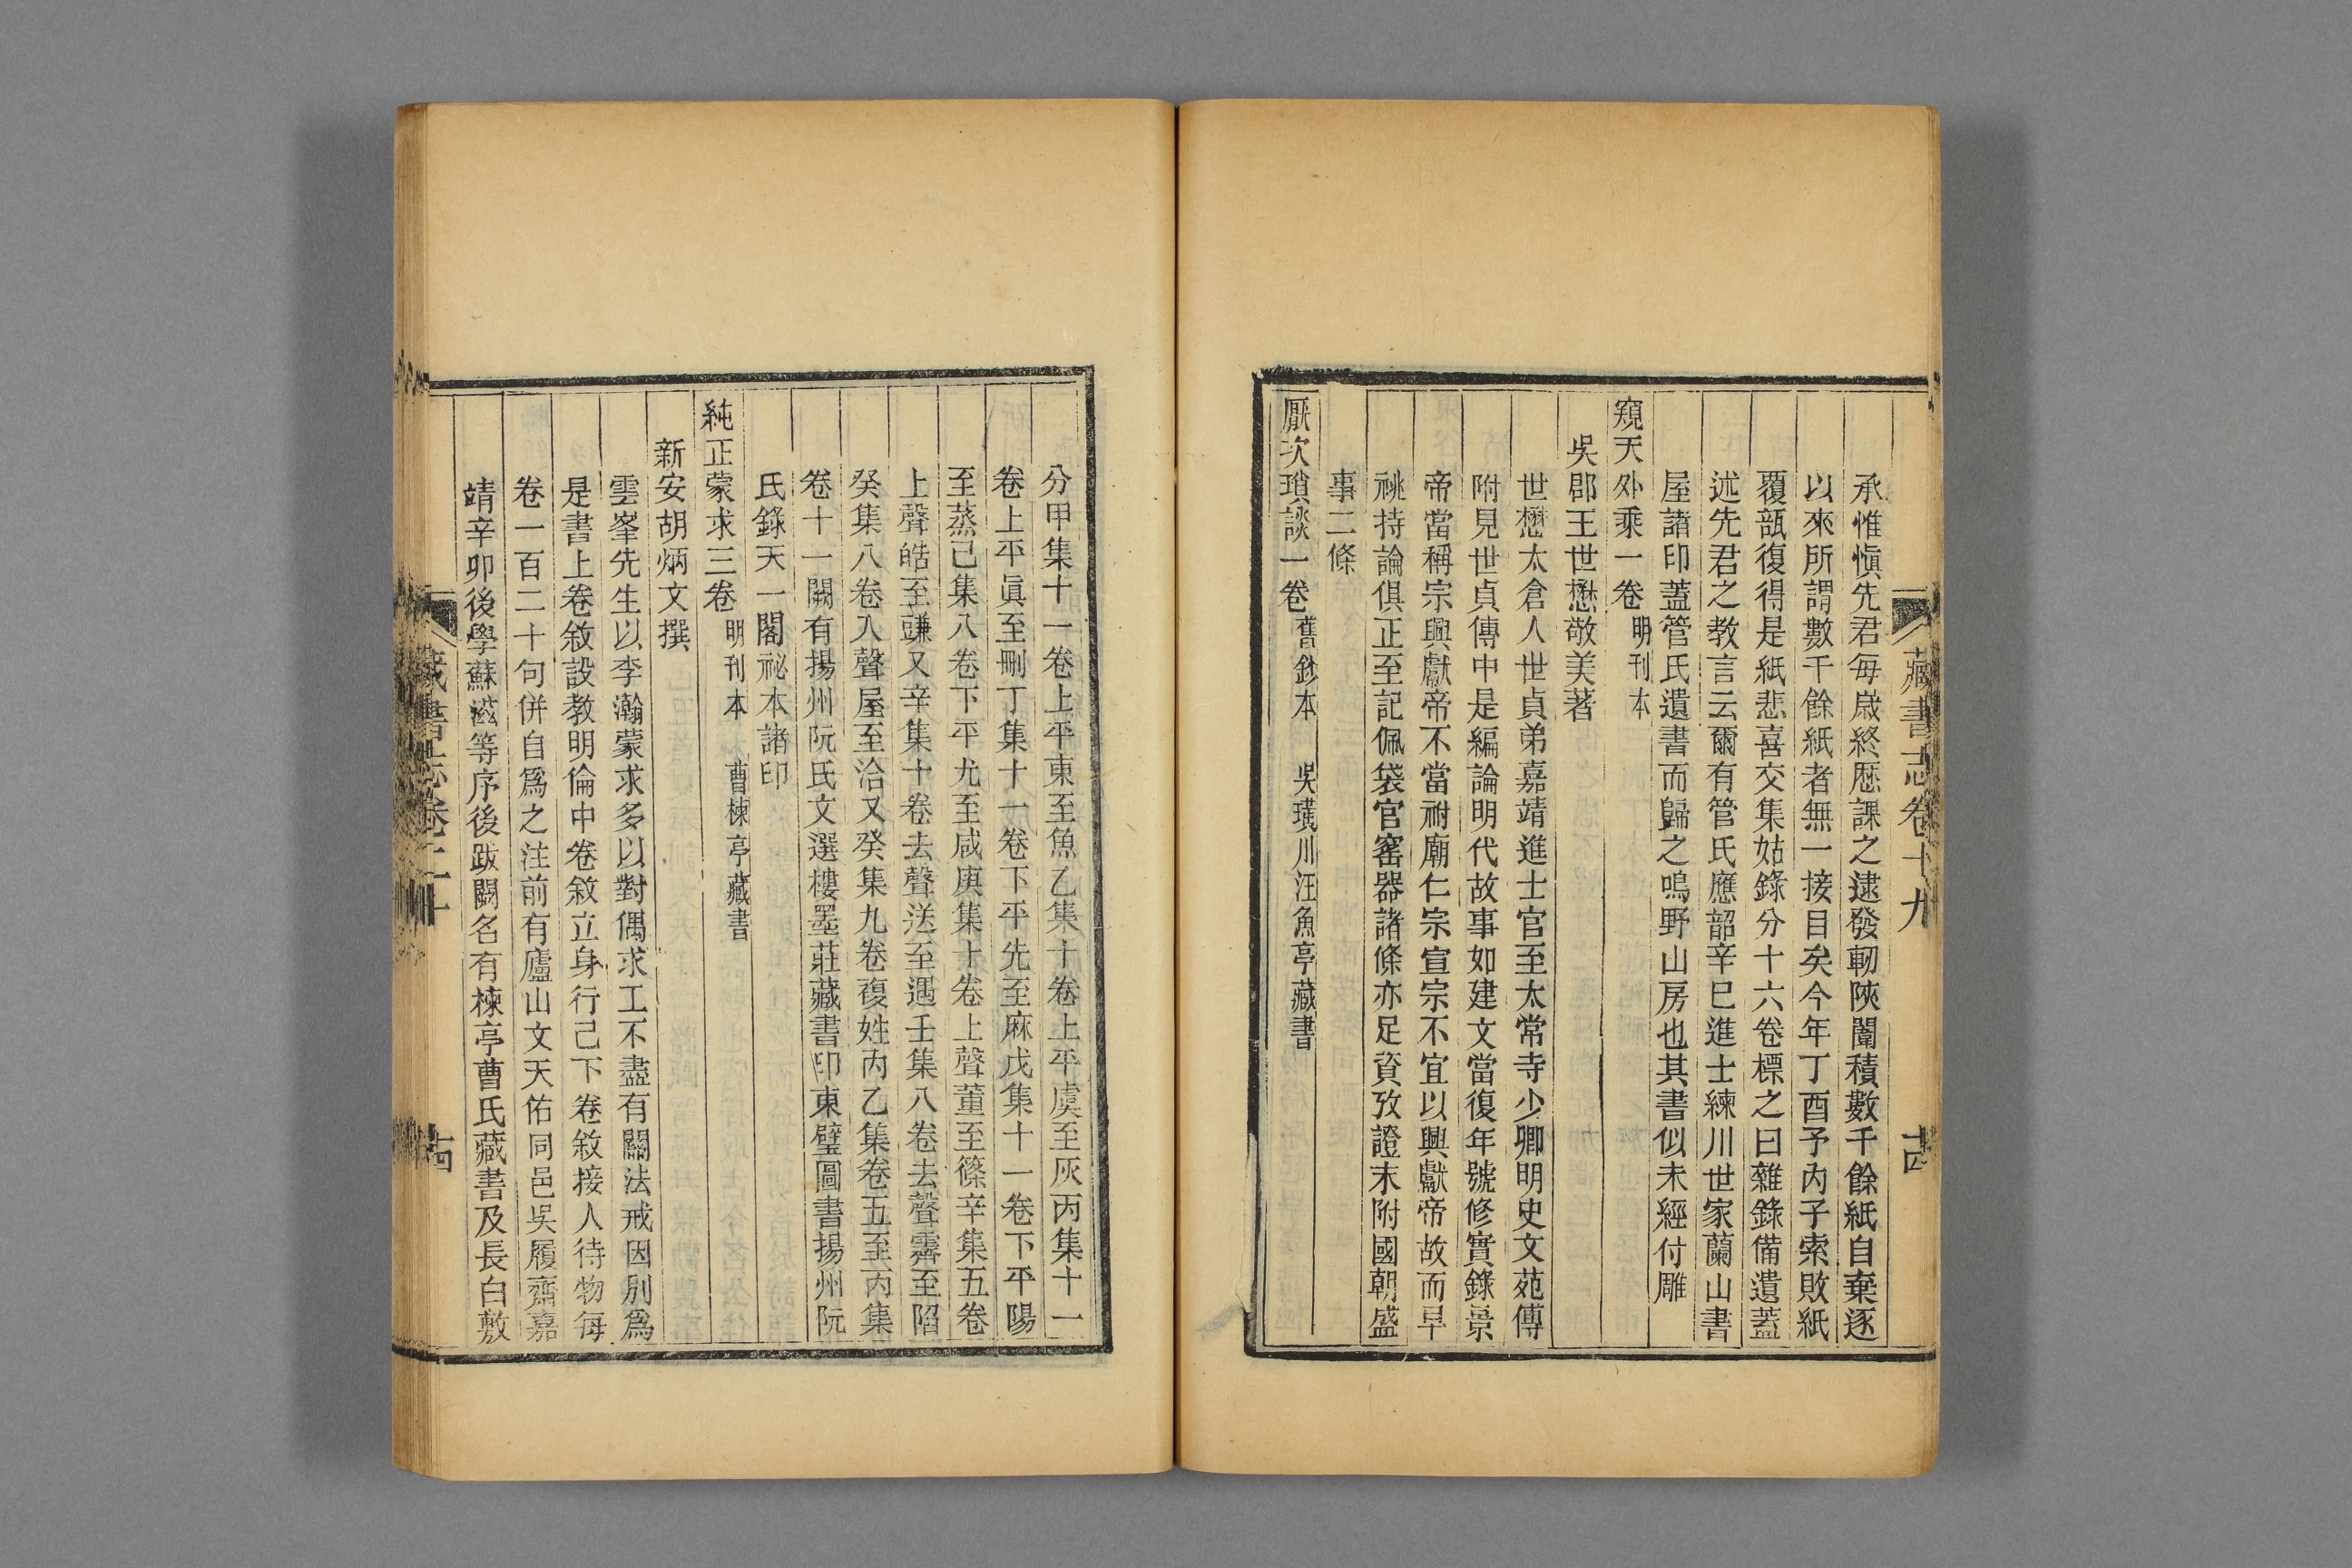 藏書志卷十九
古
承惟愼先君每歲終厯課之逮發軔陝闈積數千餘紙自棄逐
以來所謂數千餘紙者無一接目矣今年丁酉予內子索敗紙
覆瓿復得是紙悲喜交集姑錄分十六卷標之曰雜錄備遺蓋
述先君之教言云爾有管氏應韶辛巳進士練川世家蘭山書
屋諸印蓋管氏遺書而歸之嗚野山房也其書似未經付雕
窺天外乘一卷 明刊本
吳郡王世懋敬美著
世懋太倉人世貞弟嘉靖進士官至太常寺少卿明史文苑傳
附見世貞傳中是編論明代故事如建文當復年號修實錄景
帝當稱宗興獻帝不當祔廟仁宗宣宗不宜以興獻帝故而早
祧持論俱正至記佩袋官窰器諸條亦足資攷證末附國朝盛
事二條
厭次瑣談一卷 舊鈔本 吳璜川汪魚亭藏書
分甲集十一卷上平東至魚乙集十卷上平虞至灰丙集十一
卷上平眞至刪丁集十一卷下平先至麻戊集十一卷下平陽
至蒸己集八卷下平尤至咸庚集十卷上聲董至篠辛集五卷
上聲皓至豏又辛集十卷去聲送至遇壬集八卷去聲霽至陷
癸集八卷入聲屋至洽又癸集九卷複姓內乙集卷五至丙集
卷十一闕有揚州阮氏文選樓墨莊藏書印東璧圖書揚州阮
氏錄天一閣祕本諸印
純正蒙求三卷 明刊本 曹楝亭藏書
新安胡炳文撰
雲峯先生以李瀚蒙求多以對偶求工不盡有關法戒因別爲
是書上卷敘設教明倫中卷敘立身行己下卷敘接人待物每
卷一百二十句併自爲之注前有廬山文天佑同邑吳履齋嘉
靖辛卯後學蘇等序後跋闕名有楝亭曹氏藏書及長白敷
藏書志卷二十
古